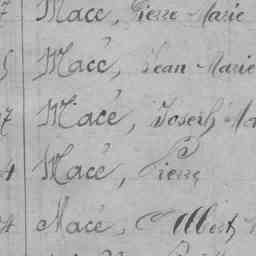 7 Macé, Pierre Marie
5 Macé, Jean Marie
7 Macé, Joseph Ma
4 Macé, Pierre
4 Macé, Albert